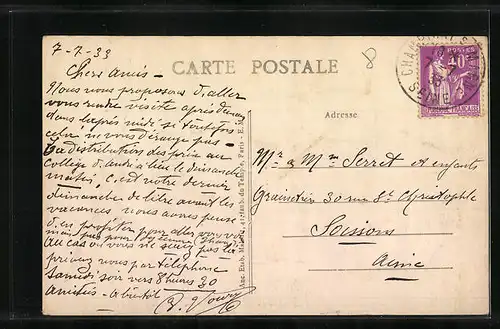 7-7-33
8
Chers Amis -
CARTE POSTALE
Nous nous proposons d'aller
vous rendre visite après demain
dans l'après midi si toutefois
cela ne vous dérange pas -
La distribution des prix au
Collège d'André a lieu le dimanche
matin, c'est notre dernier
dimanche de libre avant les
vacances nous avons pensé
d'en profiter pour aller vous voir
mais pas pour
Au cas où vous ne seriez pas libre
prévenez nous par téléphone
Samedi soir vers 8 heures 30
Amitiés - A bientôt
Adresse
Mr & Mme Serret et enfants
Grainetier 30 rue St Christophe
Soissons
Aisne
POSTES
40c
SEINE